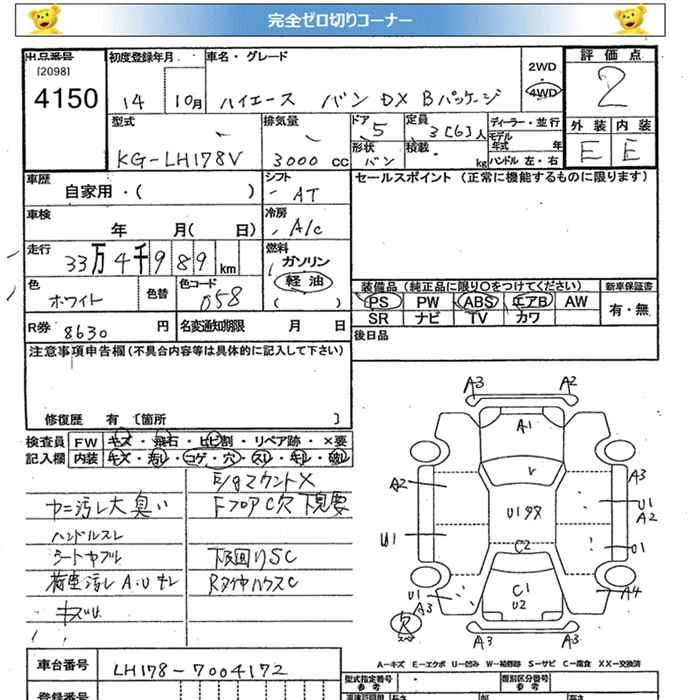 完全ゼロ切りコーナー
出品番号
[2098]
4150
初度登録年月
14 10月
車名・グレード
ハイエース バン DX Bパッケージ
2WD
4WD
評価点
2
外装 内装
E E
型式
KG-LH178V
排気量
3000 cc
ドア
5
形状
バン
定員
3[6]人
積載
kg
ディーラー・並行
モデル
年式 年
ハンドル 左・右
車歴
自家用・( )
シフト
AT
セールスポイント (正常に機能するものに限ります)
車検
年 月( 日)
冷房
A/C
走行
33万4千989km
燃料
ガソリン
軽油
( )
色
ホワイト
色替
色コード
058
装備品 (純正品に限り○をつけてください)
新車保証書
PS PW ABS エアB AW
有・無
SR ナビ TV カワ
R券 8630 円
名変通知期限 月 日
後日品
注意事項申告欄(不具合内容等は具体的に記入して下さい)
修復歴 有 〔箇所 〕
検査員
記入欄
FW キズ・飛石・ヒビ割・リペア跡・×要
内装 キズ・汚し・コゲ・穴・スレ・キレ・破レ
E/gマウント×
ヤニ汚レ大 臭い
FフロアC穴 下見要
ハンドルスレ
シートヤブレ
下回りSC
荷室汚レ A・U サビ
RタイヤハウスC
キズU
A3 A2
A1
A2
V
A3
U1
A2
U1タヌ
U1
C2
U1
U1
A3
C1
U2
A4
欠
A3 A3
A-キズ E-エクボ U-凹み W-補修跡 S-サビ C-腐食 XX-交換済
車台番号
LH178-7004172
型式指定番号
参考
類別区分番号
参考
登録番号